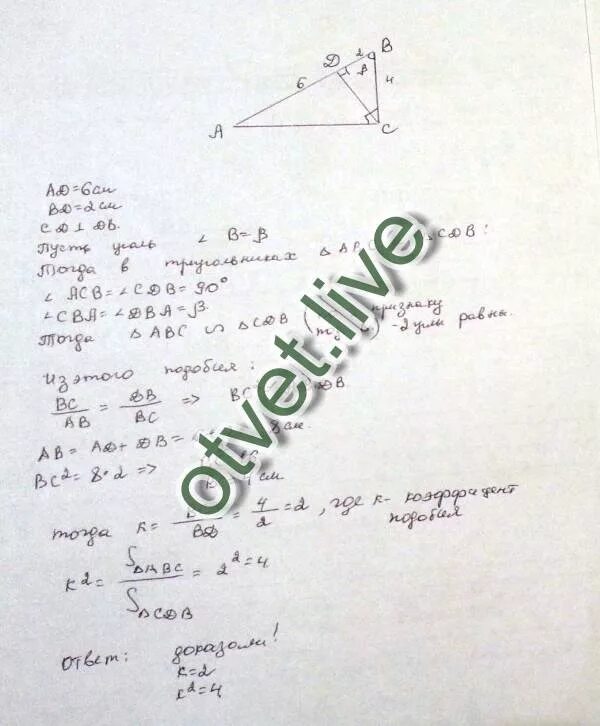 B
2
D
β
6
4
A
C
AD=6см
BD=2см
CD⊥DB.
Пусть угол ∠B=β
Тогда в треугольниках △ABC △CDB:
∠ACB=∠CDB=90°
∠CBA=∠DBA=β.
Тогда △ABC ∽ △CDB ( признаку
-2 углы равны.
Из этого подобия:
BC/AB = DB/BC => BC DB.
AB=AD+DB= 8см.
BC²=8·2 => см
тогда k= /BD = 4/2 =2, где k- коэффицент
подобия
k²= S△ABC/S△CDB = 2²=4
Ответ: доказали!
k=2
k²=4
otvet.live